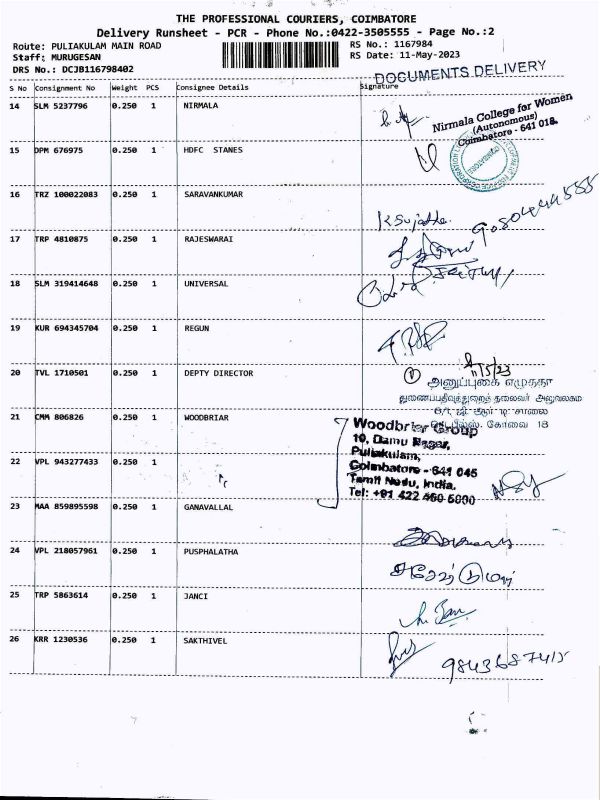 THE PROFESSIONAL COURIERS, COIMBATORE
Delivery Runsheet - PCR - Phone No.:0422-3505555 - Page No.:2
Route: PULIAKULAM MAIN ROAD RS No.: 1167984
Staff: MURUGESAN RS Date: 11-May-2023
DRS No.: DCJB116798402
DOCUMENTS DELIVERY
S No Consignment No Weight PCS Consignee Details Signature
14 SLM 5237796 0.250 1 NIRMALA
Nirmala College for Women
(Autonomous)
Coimbatore - 641 018.
15 DPM 676975 0.250 1 HDFC STANES
16 TRZ 100022083 0.250 1 SARAVANKUMAR
K Sujatha
17 TRP 4810875 0.250 1 RAJESWARAI
18 SLM 319414648 0.250 1 UNIVERSAL
19 KUR 694345704 0.250 1 REGUN
20 TVL 1710501 0.250 1 DEPTY DIRECTOR
11/5/23
அனுப்புகை எழுதநர்
துணைப்பதிவுத்துறைத் தலைவர் அலுவலகம்
கோவை 18
21 CMM 806826 0.250 1 WOODBRIAR
Woodbriar Group
10, Damu Nagar,
Puliakulam,
Coimbatore - 641 045
Tamil Nadu, India.
Tel: +91 422 450 5000
22 VPL 943277433 0.250 1
23 MAA 859895598 0.250 1 GANAVALLAL
24 VPL 218057961 0.250 1 PUSPHALATHA
25 TRP 5863614 0.250 1 JANCI
26 KRR 1230536 0.250 1 SAKTHIVEL
9843687415